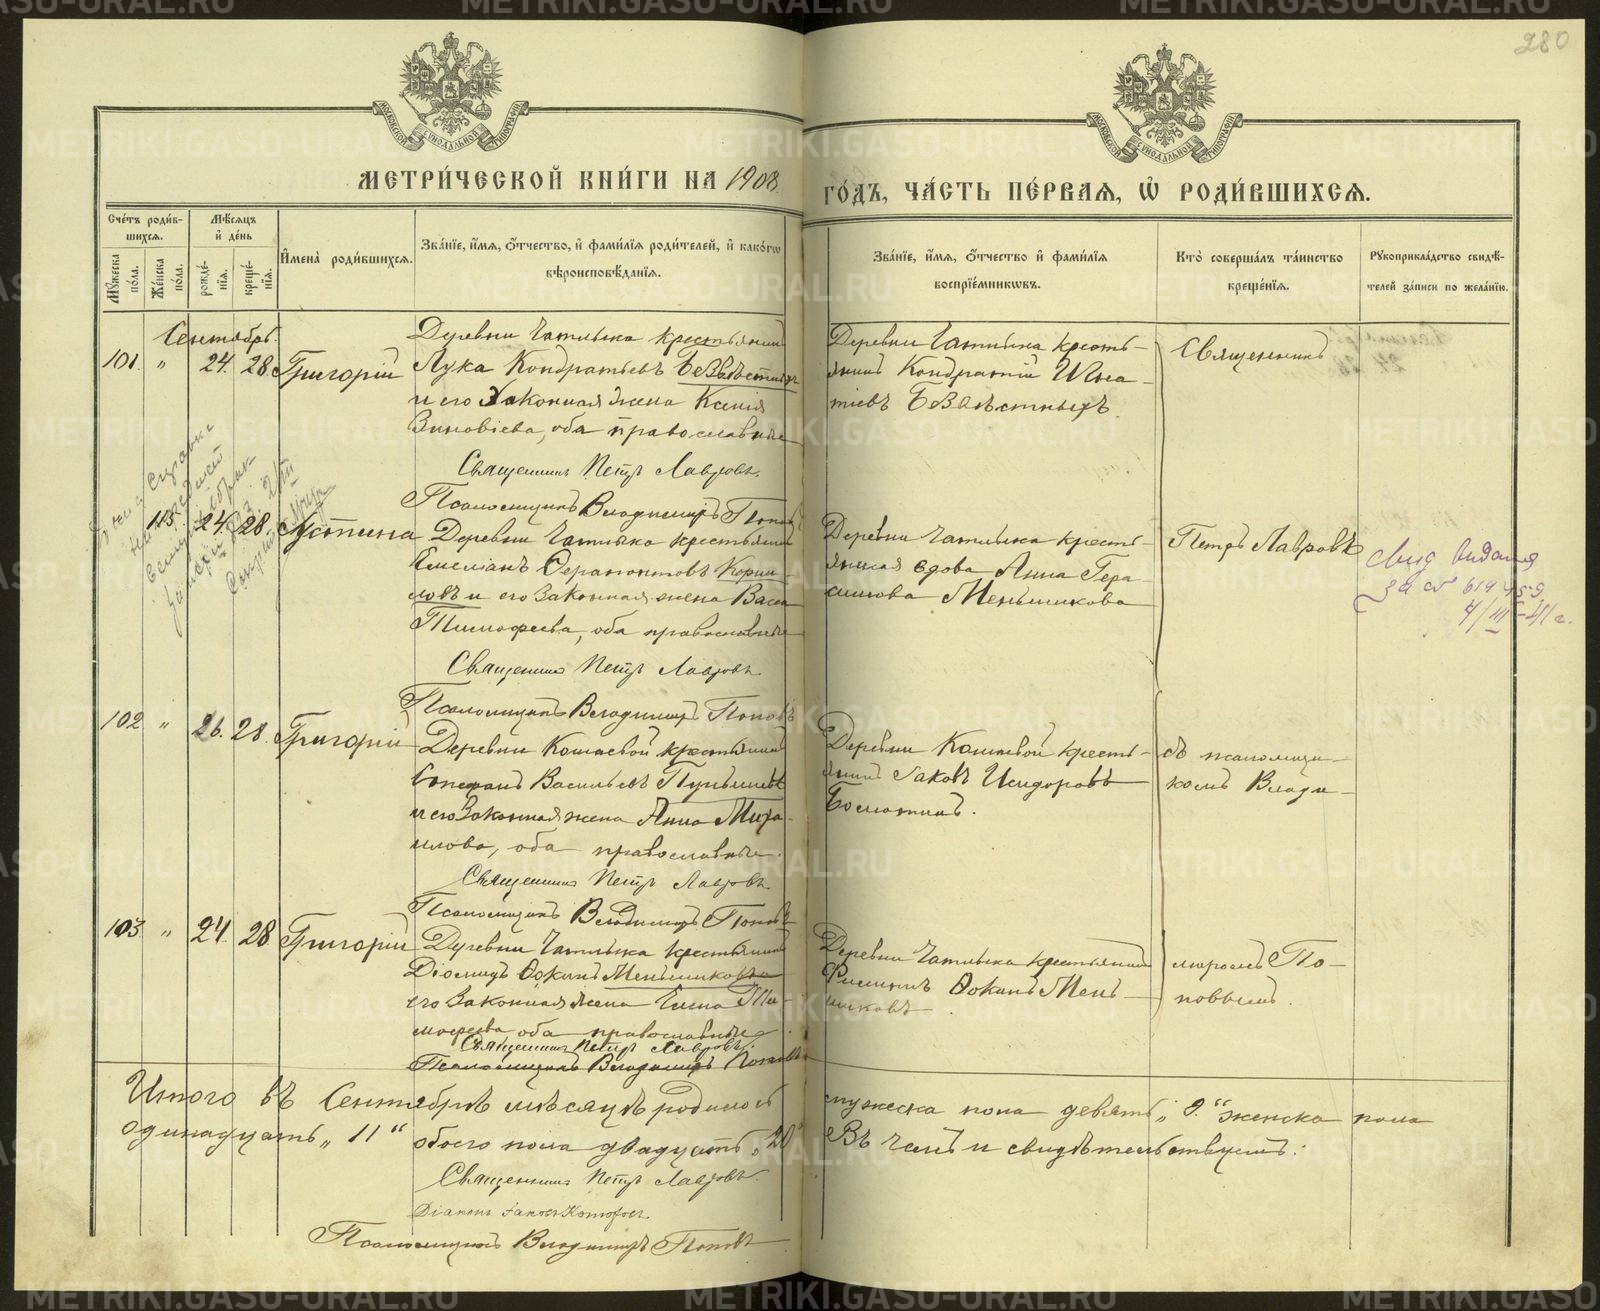 280
МОСКОВСКОЙ СѴНОДАЛЬНОЙ ТИПОГРАФІИ
МОСКОВСКОЙ СѴНОДАЛЬНОЙ ТИПОГРАФІИ
МЕТРИ́ЧЕСКОЙ КНИ́ГИ НА 1908
ГО́ДЪ, ЧА́СТЬ ПЕ́РВАЯ, Ѽ РОДИ́ВШИХСЯ.
Сче́тъ роди́в-
шихся.
Мѣ́сяцъ
и҆ де́нь
Мꙋ́жеска по́ла.
Же́нска по́ла.
рожде́нїя.
креще́нїя.
И҆мена̀ роди́вшихся.
Зва́нїе, и҆́мя, ѻ҆́тчество, и҆ фами́лїя роди́телей, и҆ како́гѡ
вѣроисповѣ́данїя.
Зва́нїе, и҆́мя, ѻ҆́тчество и҆ фами́лїя
воспрїе́мникѡвъ.
Кто̀ соверша́лъ та́инство
креще́нїя.
Рꙋкоприкла́дство свидѣ́-
телей за́писи по жела́нїю.
Сентябрь.
101. " 24. 28. Григорій
Деревни Чатлыка крестьянинъ
Лука Кондратьевъ Безвѣстныхъ
и его законная жена Ксенія
Зиновіева, оба православные
Священникъ Петръ Лавровъ.
Псаломщикъ Владимиръ Поповъ
Деревни Чатлыка кресть-
янинъ Кондратій Игна-
тіевъ Безвѣстныхъ.
Священникъ
113. 24. 28. Устина
Деревни Чатлыка крестьянинъ
Емеліанъ Ферапонтовъ Корни-
ловъ и его законная жена Васса
Тимофеева, оба православные
Священникъ Петръ Лавровъ
Псаломщикъ Владимиръ Поповъ
Деревни Чатлыка кресть-
янская вдова Анна Гера-
симова Меньшикова
Петръ Лавровъ
Свид выдано
за № 619459
4/III-41 г.
102 " 26. 28. Григорій
Деревни Кошаевой крестьянинъ
Степанъ Васильевъ
и его законная жена Анна Миха-
илова, оба православные.
Священникъ Петръ Лавровъ.
Псаломщикъ Владимиръ Поповъ
Деревни Кошаевой кресть-
янинъ Іаковъ Исидоровъ
съ псаломщи-
комъ Влади-
103. " 24. 28 Григорій
Деревни Чатлыка крестьянинъ
Діомидъ Фокинъ Меньшиковъ и
его законная жена Елена Ти-
мофеева оба православные.
Священникъ Петръ Лавровъ.
Псаломщикъ Владимиръ Поповъ
Деревни Чатлыка крестьянинъ
Филиппъ Фокинъ Мень-
шиковъ.
миромъ По-
повымъ.
Итого въ Сентябрѣ мѣсяцѣ родилось
мужеска пола девять „9." женска пола
одинадцать „11" обоего пола двадцать „20"
Въ чемъ и свидѣтельствуемъ:
Священникъ Петръ Лавровъ.
Псаломщикъ Владимиръ Поповъ
METRIKI.GASO-URAL.RU